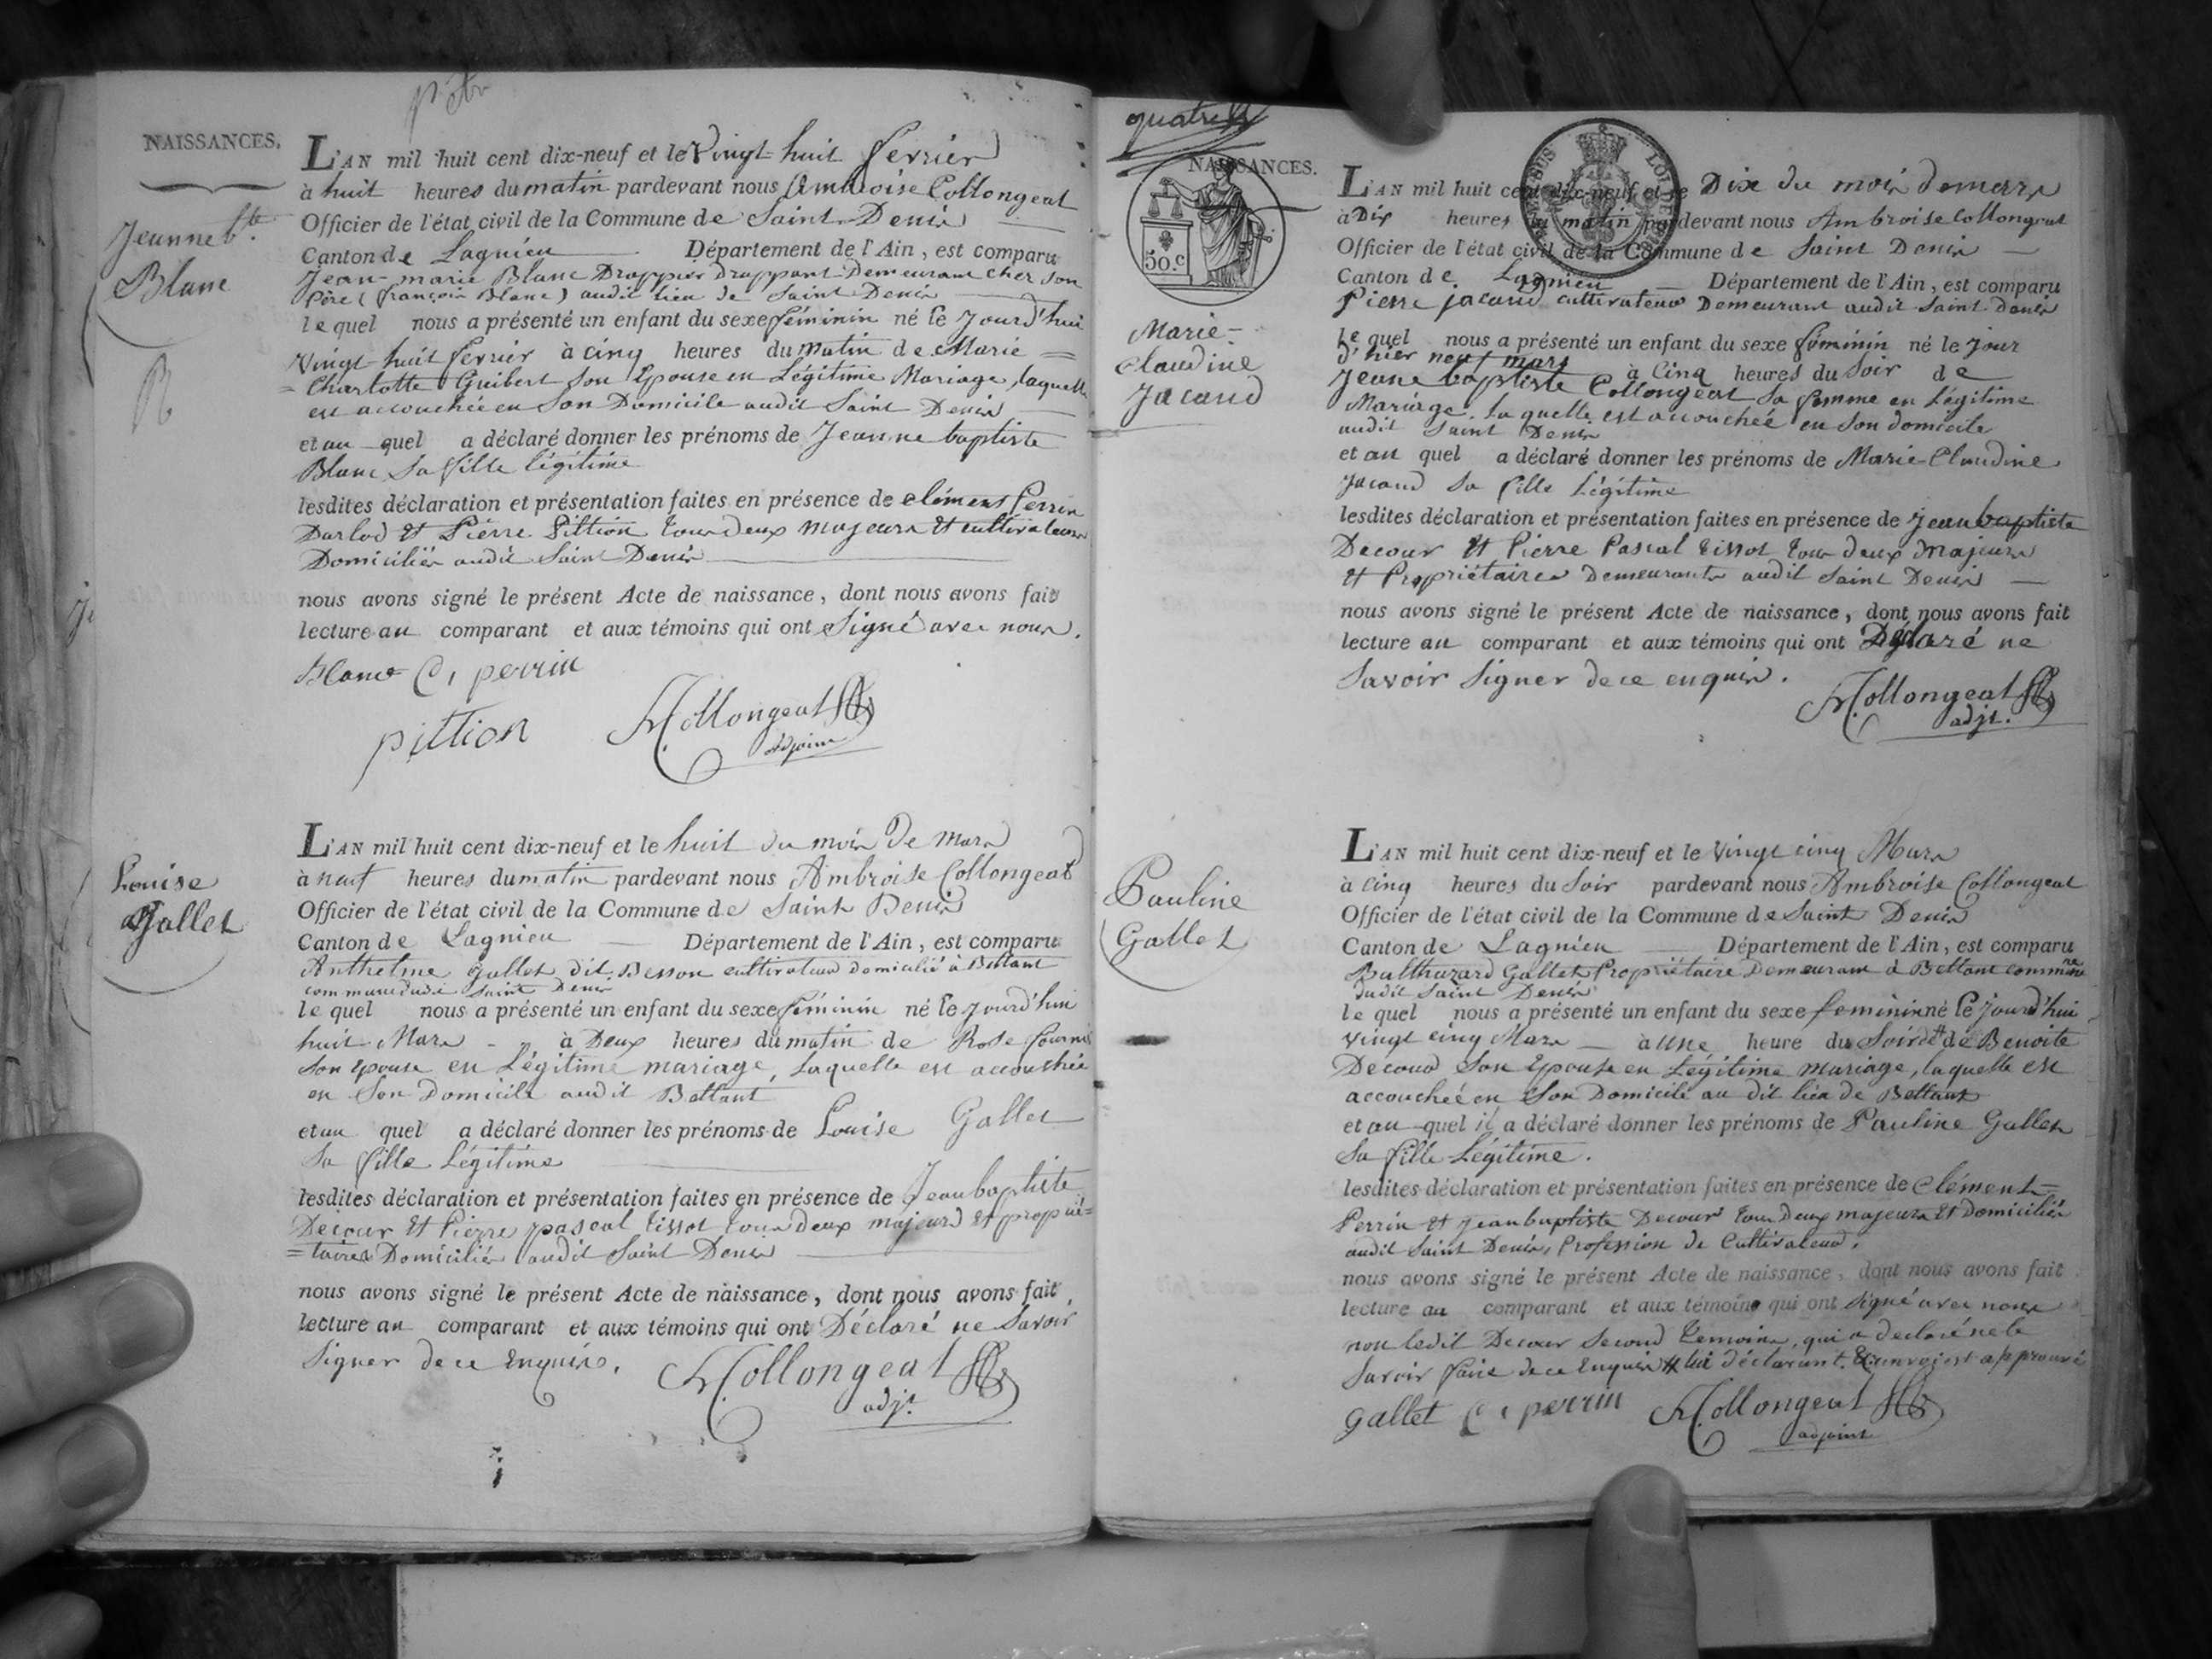 NAISSANCES.
Jeanne bte
Blanc
L'AN mil huit cent dix-neuf et le Vingt-huit fevrier
à huit heures du matin pardevant nous Ambroise Collongeat
Officier de l'état civil de la Commune de Saint Denis
Canton de Lagnieu Département de l'Ain, est comparu
Jean-marie Blanc Drappier drappant Demeurant cher son
Père (françois Blanc) audit lieu de Saint Denis
lequel nous a présenté un enfant du sexe féminin né le jourd'hui
Vingt-huit fevrier à cinq heures du matin de Marie =
= Charlotte Guibert son Epouse en Légitime Mariage, laquelle
est accouchée en son Domicile audit Saint Denis
et au quel a déclaré donner les prénoms de Jeanne baptiste
Blanc sa fille légitime
lesdites déclaration et présentation faites en présence de clément Perrin
Darlod et Pierre Pittion tous deux majeurs et cultivateurs
Domiciliés audit Saint Denis
nous avons signé le présent Acte de naissance, dont nous avons fait
lecture au comparant et aux témoins qui ont Signé avec nous.
Blanc C, perrin
pittion Collongeat
adjoint
Louise
Gallet
L'AN mil huit cent dix-neuf et le huit du mois de Mars
à neuf heures du matin pardevant nous Ambroise Collongeat
Officier de l'état civil de la Commune de Saint Denis
Canton de Lagnieu Département de l'Ain, est comparu
Anthelme Gallet dit Besson cultivateur domicilié à Bettant
commune dudi Saint Denis
lequel nous a présenté un enfant du sexe féminin né le jourd'hui
huit Mars - à Deux heures du matin de Rose
son epouse en Légitime mariage, laquelle est accouchée
en son Domicile audit Bettant
et au quel a déclaré donner les prénoms de Louise Gallet
sa fille Légitime
lesdites déclaration et présentation faites en présence de Jean baptiste
Decour et Pierre pascal tissot tous deux majeurs et proprié=
=taires Domiciliés audit Saint Denis
nous avons signé le présent Acte de naissance, dont nous avons fait,
lecture au comparant et aux témoins qui ont Déclaré ne Savoir
Signer de ce Enquis. Collongeat
adjt
NAISSANCES.
50.c
Marie-
Claudine
Jacand
L'AN mil huit cent dix-neuf et le Dix du mois de mars
à Dix heures du matin pardevant nous Ambroise Collongeat
Officier de l'état civil de la Commune de Saint Denis
Canton de Lagnieu Département de l'Ain, est comparu
Pierre jacand cultivateur Demeurant audit Saint Denis
lequel nous a présenté un enfant du sexe féminin né le jour
d'hier neuf mars à Cinq heures du Soir de
Jeane baptiste Collongeat sa femme en Légitime
Mariage. laquelle est accouchée en son domicile
audit Saint Denis
et au quel a déclaré donner les prénoms de Marie Claudine
Jacand sa fille Légitime
lesdites déclaration et présentation faites en présence de Jean baptiste
Decour et Pierre Pascal tissot tous deux Majeurs
et Propriétaires Demeurants audit Saint Denis
nous avons signé le présent Acte de naissance, dont nous avons fait
lecture au comparant et aux témoins qui ont Déclaré ne
Savoir Signer de ce enquis.
Collongeat
adjt.
Pauline
Gallet
L'AN mil huit cent dix-neuf et le Vingt cinq Mars
à Cinq heures du Soir pardevant nous Ambroise Collongeat
Officier de l'état civil de la Commune de Saint Denis
Canton de Lagnieu Département de l'Ain, est comparu
Balthazard Gallet Propriétaire Demeurant à Bettant commune
dudit Saint Denis
lequel nous a présenté un enfant du sexe feminin né le jourd'hui
vingt cinq Mars à une heure du Soir de Benoite
Decour son Epouse en Légitime mariage, laquelle est
accouchée en son Domicile au dit lieu de Bettant
et au quel il a déclaré donner les prénoms de Pauline Gallet
sa fille Légitime.
lesdites déclaration et présentation faites en présence de Clément=
Perrin et jean baptiste Decour tous Deux majeurs et Domiciliés
audit Saint Denis, Profession de Cultivateur,
nous avons signé le présent Acte de naissance, dont nous avons fait
lecture au comparant et aux témoins qui ont signé avec nous
non ledit Decour Second temoins, qui a declaré ne le
Savoir faire de ce Enquis # lui déclarant. renvoi approuvé
Gallet C, perrin Collongeat
adjoint